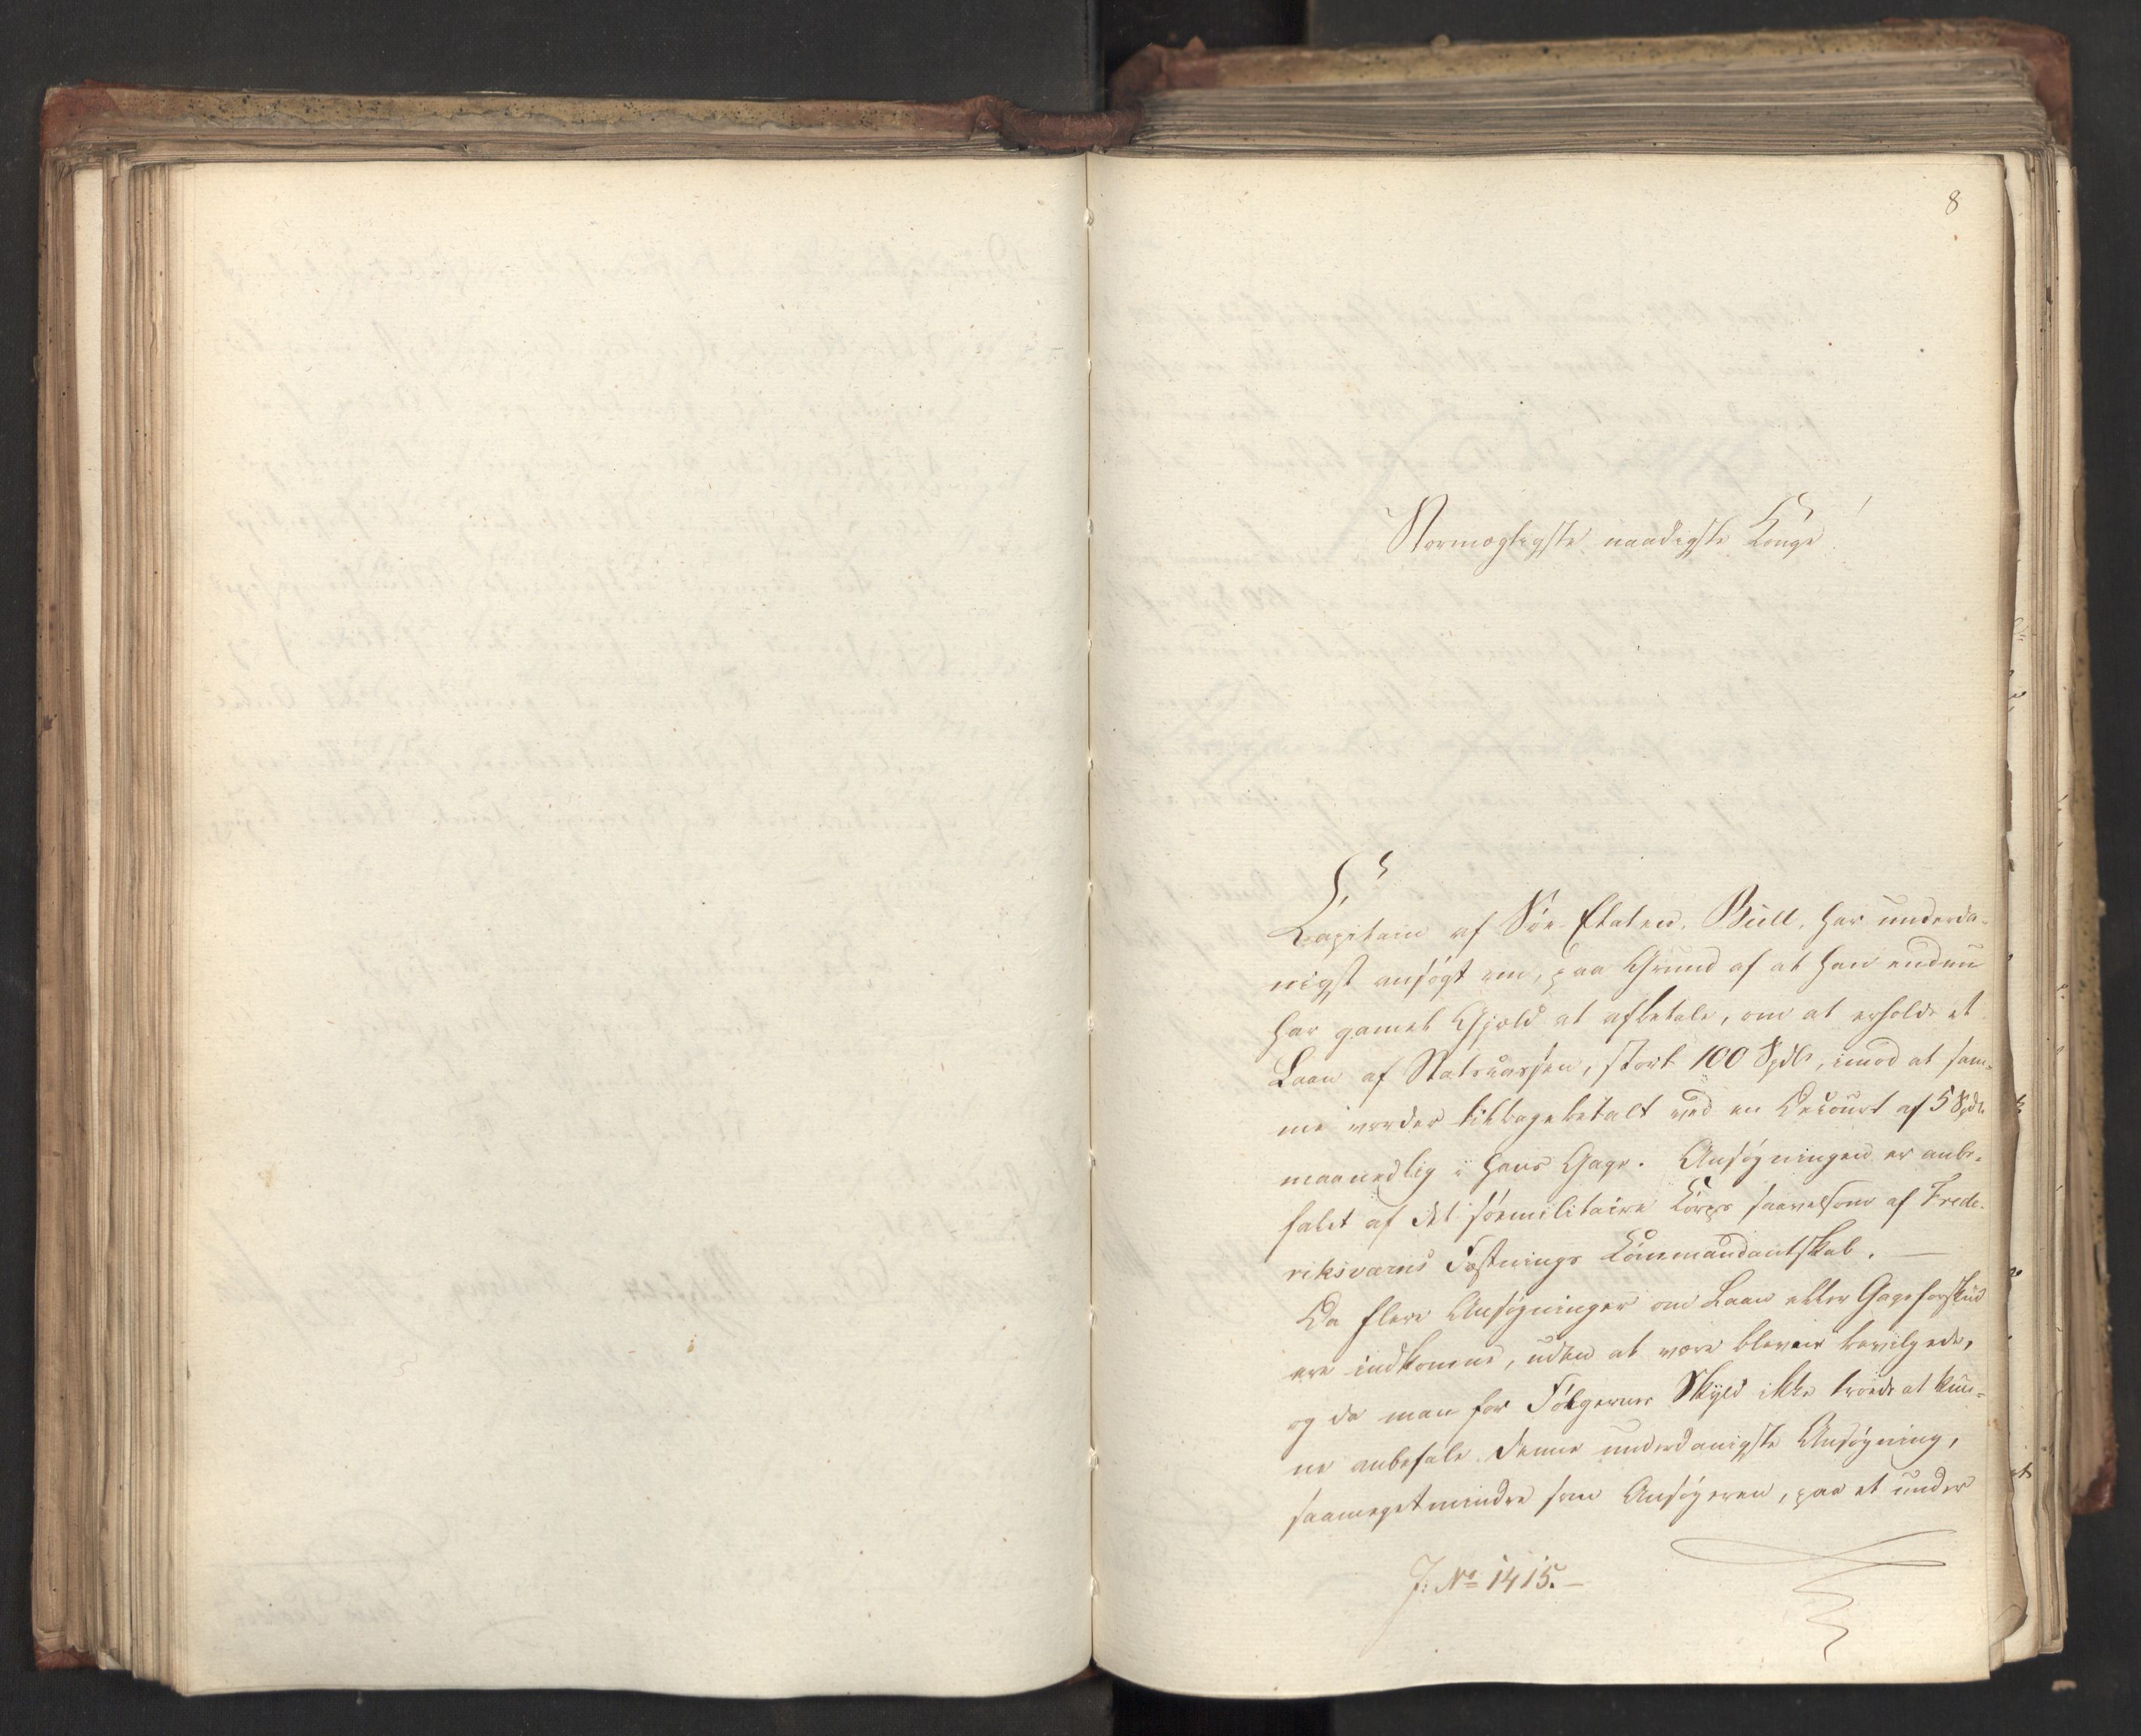 8
Stormægtigste naadigste Konge!
Kapitain af Søe-Etaten, Büll, har underda-
nigst ansøgt om, paa Grund af at han endnu
har gamel Gjæld at afbetale, om at erholde et
Laan af Statscassen, stort 100 Spdlr, imod at sam-
me vorder tilbagebetalt ved en Decourt af 5 Spdlr
maanedlig i hans Gage. Ansøgningen er anbe-
falet af det søemilitaire Corps saavelsom af Frede-
riksværns Fæstnings Commandantskab. —
Da flere Ansøgninger om Laan eller Gageforskud
ere indkomne, uden at være blevne bevilgede,
og da man for Følgernes Skyld ikke troede at kun-
ne anbefale denne underdanigste Ansøgning,
saameget mindre som Ansøgeren, paa et under
J: No 1415. —